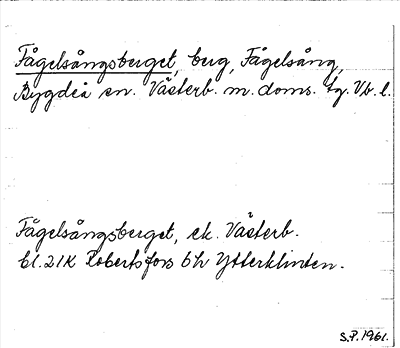 Fågelsångsberget, berg, Fågelsång,
Bygdeå sn. Västerb. m. doms. tg. Vb. l.
Fågelsångsberget, ek. Västerb.
bl. 21K Robertsfors 6h Ytterklinten.
S.P. 1961.